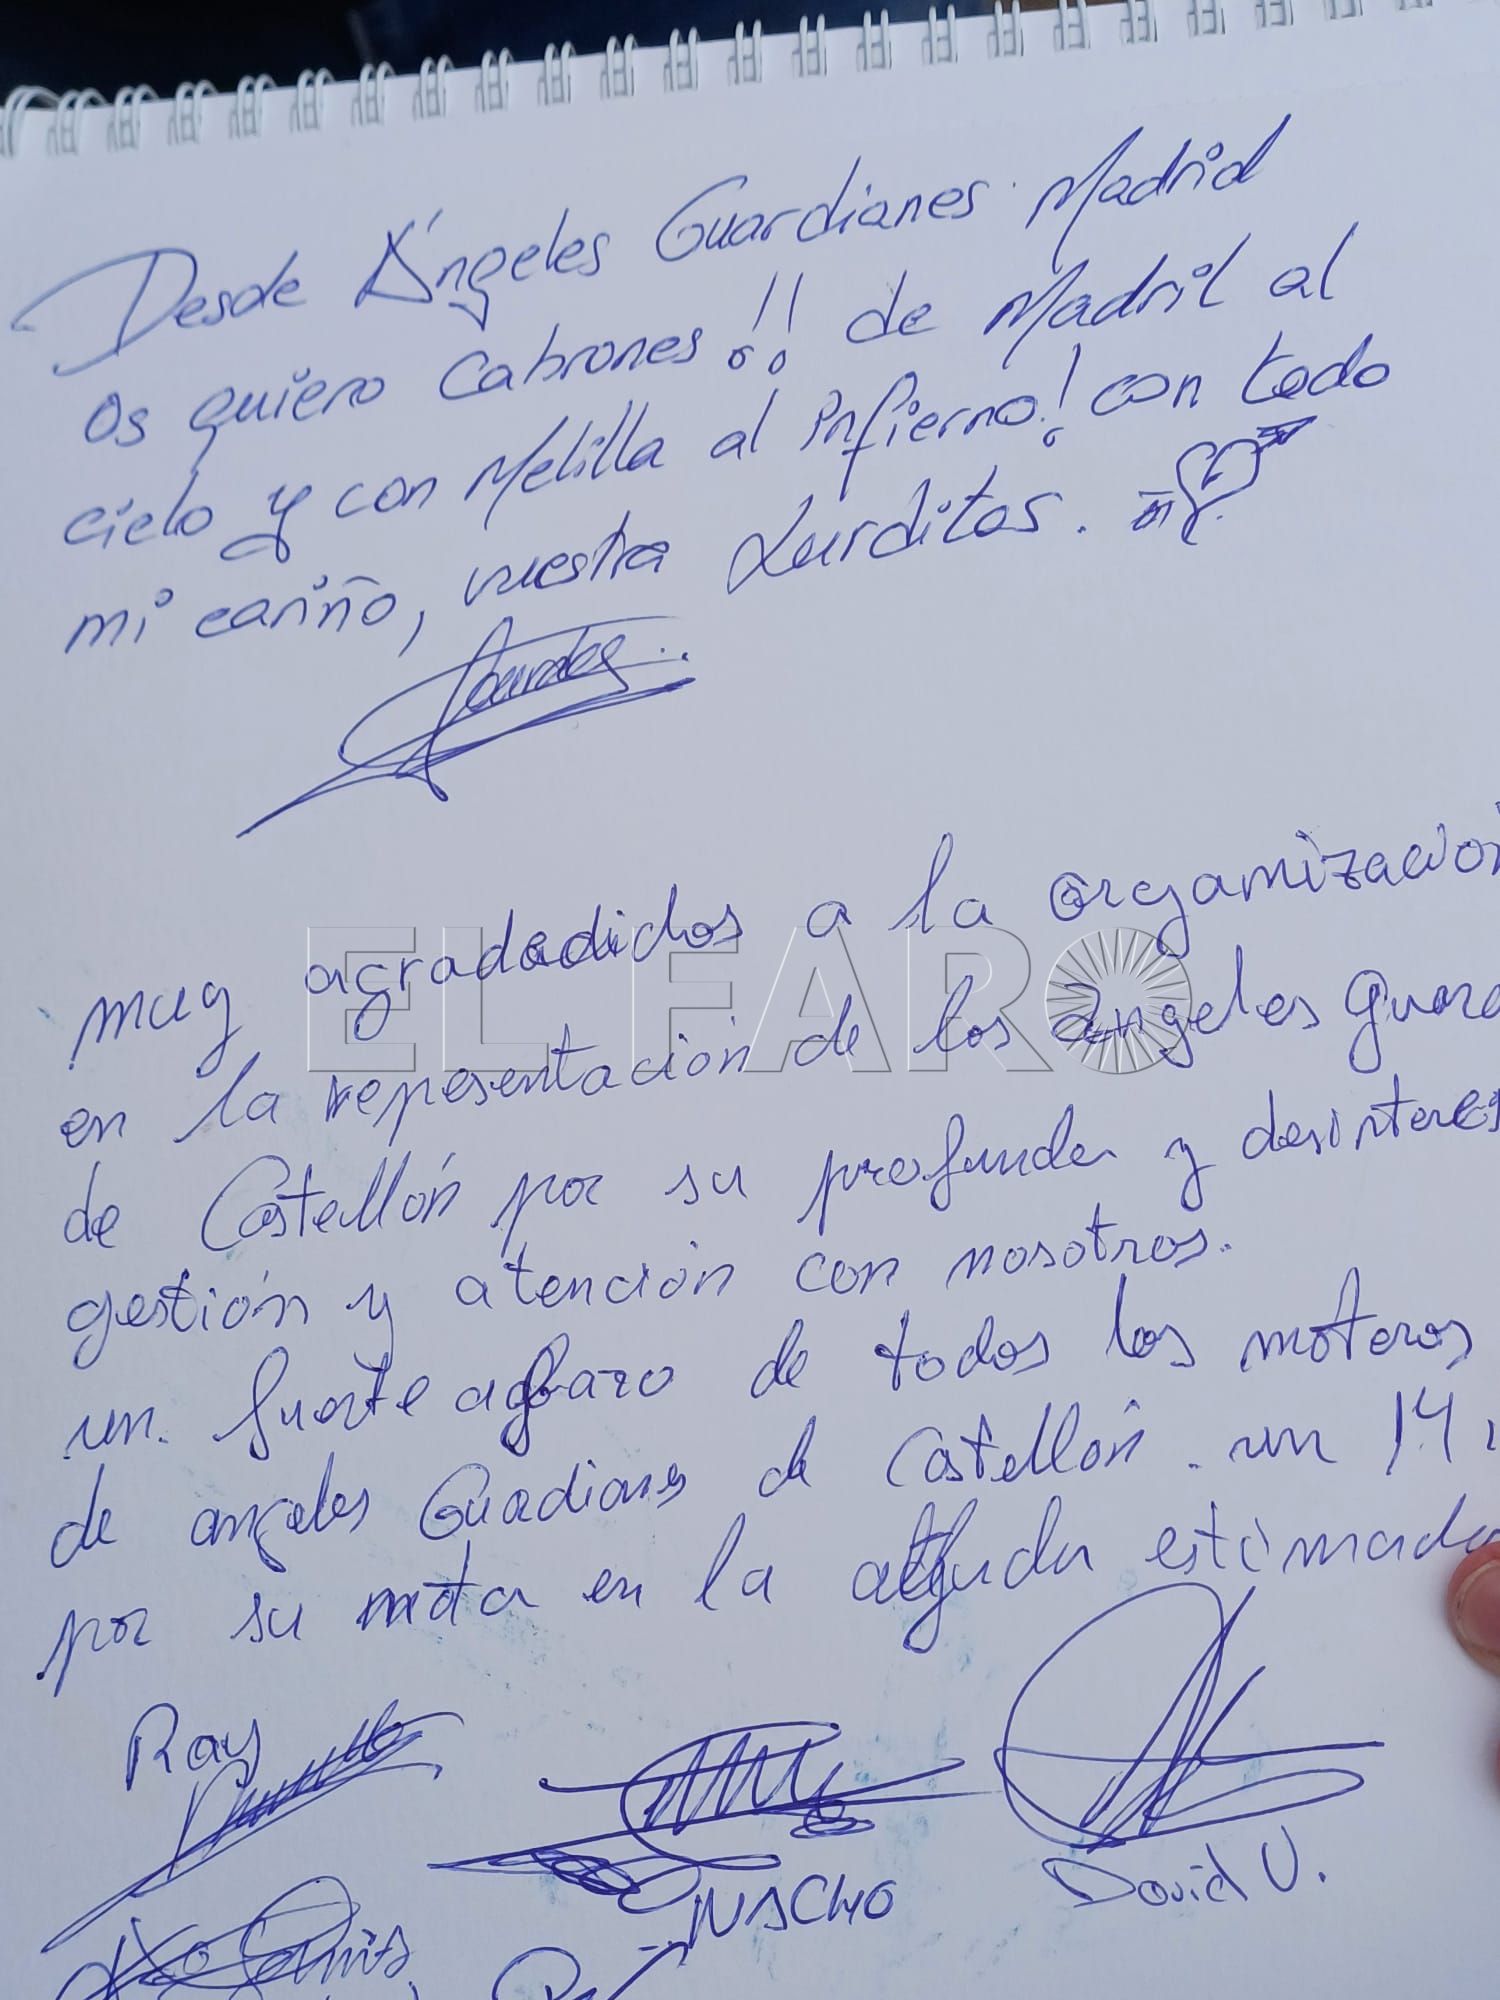 Desde Ángeles Guardianes Madrid
os quiero cabrones!! de Madril al
cielo y con Melilla al infierno! con todo
mi cariño, vuestra Lurditas.
Lourdes
muy agradadidos a la organización
EL FARO
en la representación de los ángeles guard
de Castellón por su profunda y desinteres
gestión y atención con nosotros.
un fuerte abrazo de todos los moteros
de angeles Guardianes de Castellón. un 14
por su nota en la ayuda estimada
Ray
NACHO
David V.